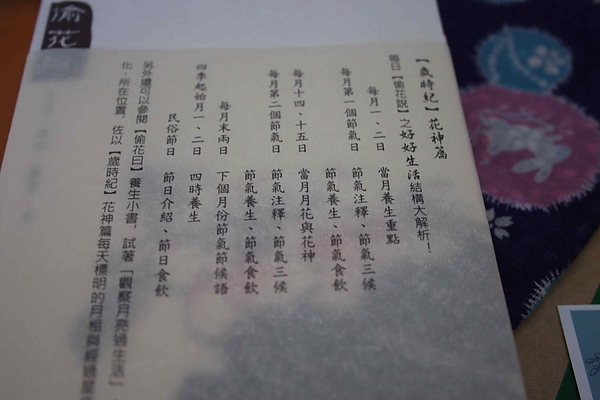 偷花
【歲時紀】花神篇
每日【偷花說】之好好生活結構大解析！
每月一、二日　當月養生重點
每月第一個節氣日　節氣注釋、節氣三候
節氣養生、節氣食飲
每月十四、十五日　當月月花與花神
每月第二個節氣日　節氣注釋、節氣三候
節氣養生、節氣食飲
每月末兩日　下個月份節氣節候語
四季起始月一、二日　四時養生
民俗節日　節日介紹、節日食飲
另外還可以參閱【偷花曰】養生小書，試著「觀察月亮過生活」
化、所在位置，佐以【歲時紀】花神篇每天標明的月相與經過星